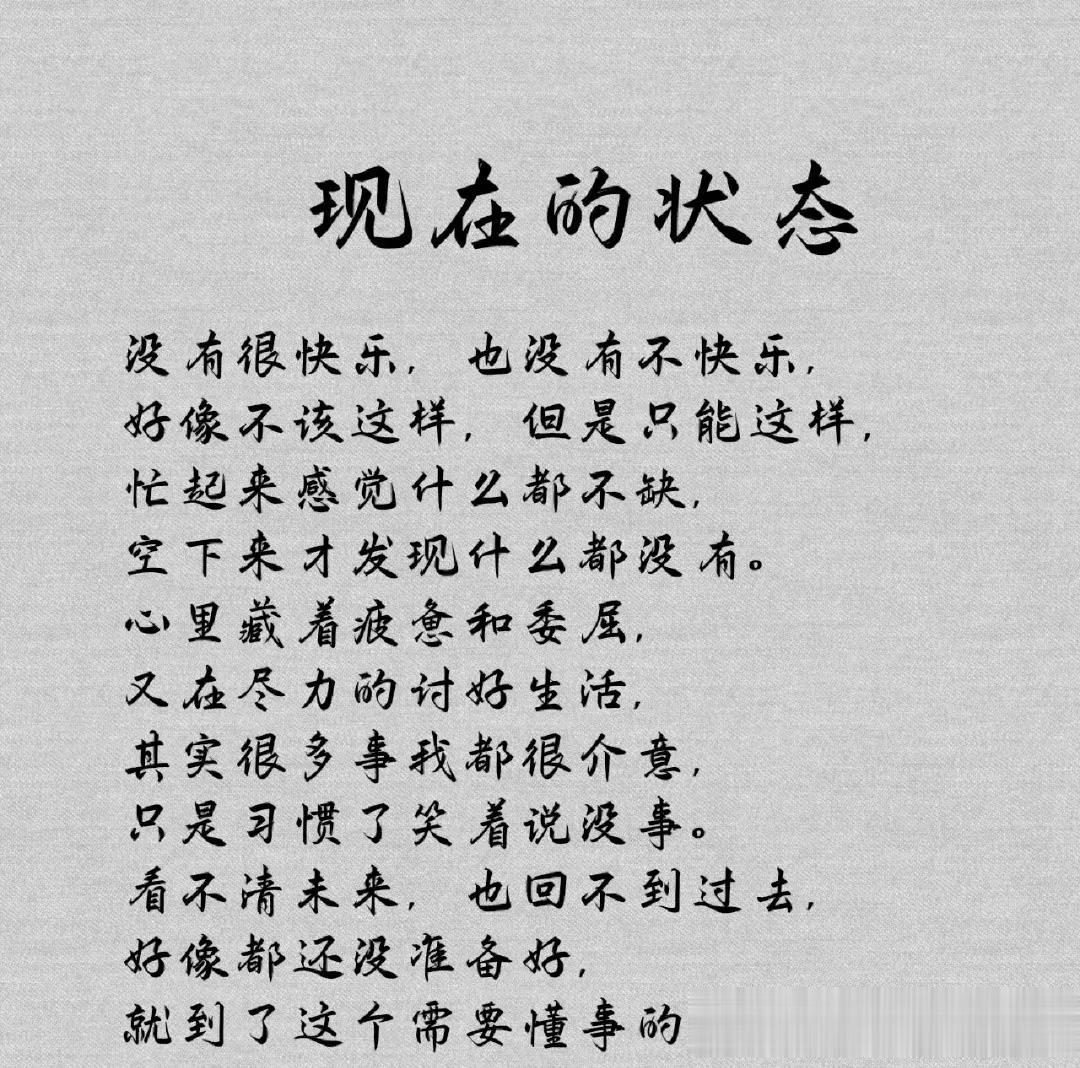 现在的状态
没有很快乐，也没有不快乐，
好像不该这样，但是只能这样，
忙起来感觉什么都不缺，
空下来才发现什么都没有。
心里藏着疲惫和委屈，
又在尽力的讨好生活，
其实很多事我都很介意，
只是习惯了笑着说没事。
看不清未来，也回不到过去，
好像都还没准备好，
就到了这个需要懂事的